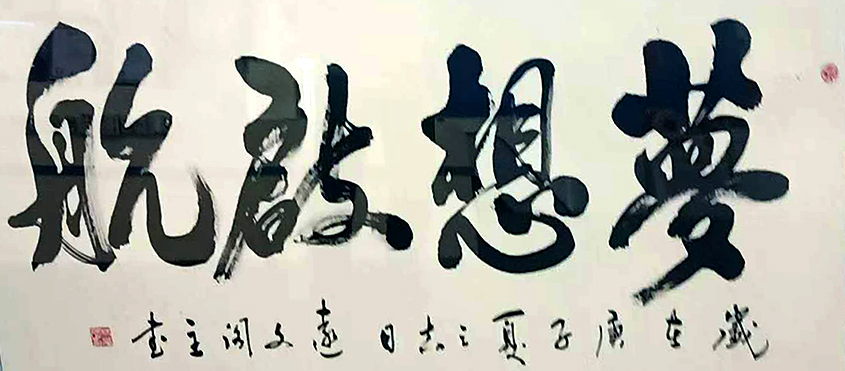 夢想啟航
歲在庚子夏之吉日遠文閣主書